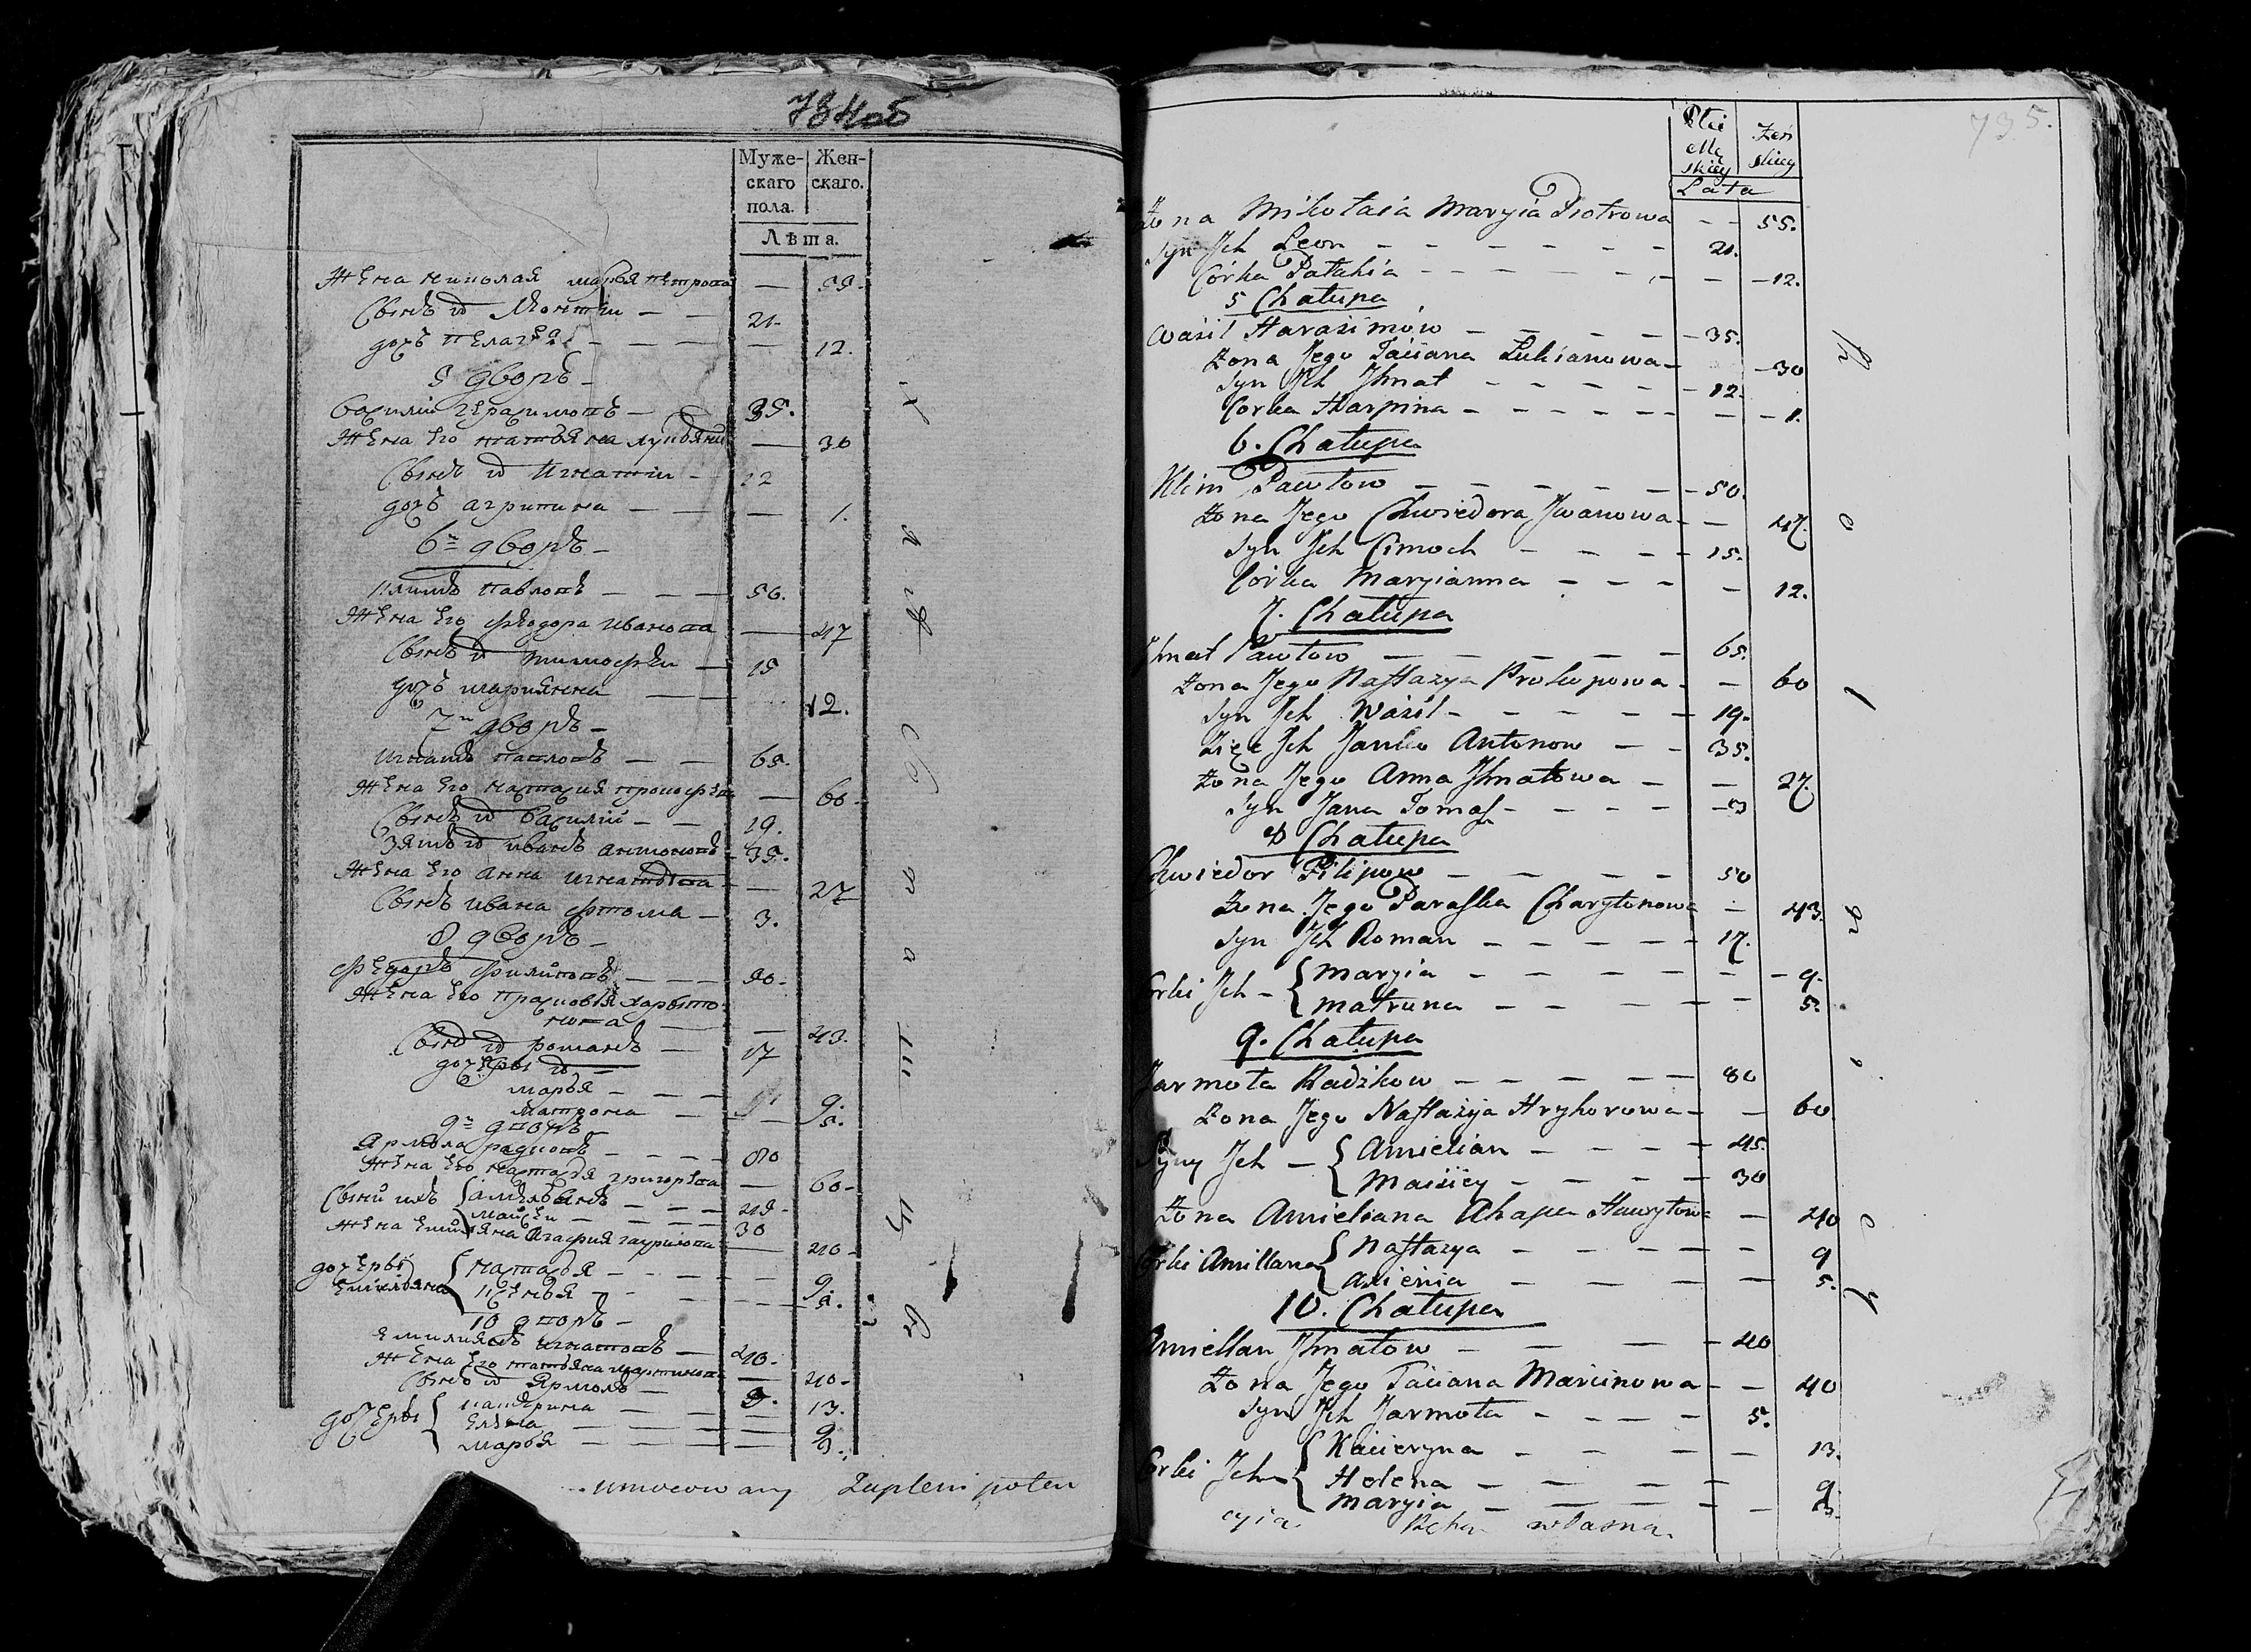 734об
Муже- Жен-
скаго скаго.
пола.
Лѣта.
Жена Николая Марья Петрова — 55.
Сынъ их Леонтiй — — 21.
дочь Пелагея — — — — 12.
5 дворъ —
Василiй Герасимовъ — 35.
Жена Его Татьяна Лукьянова — 30
Сынъ их Игнатiй — 12
дочь Агрипина — — — 1.
6й дворъ —
Климъ Павловъ — — — 50.
Жена Его Феодора Иванова — 47
Сынъ их Тимофеи — 15
дочь Мариянна — — 12.
7й дворъ —
Игнатъ Павловъ — — 65.
Жена Его Настасия — 60.
Сынъ их Василiй — — 19.
Зять их Иванъ Антоновъ — 35.
Жена Его Анна Игнатьева — — 27
Сынъ Ивана Фтома — 3.
8 дворъ —
Федоръ Филиповъ — — 50.
Жена Его Прасковья Харыто-
нова — — 43.
Сынъ их Романъ — 17
дочерьи их —
Марья — — — 9.
Матрона — — 5.
9й дворъ —
Ярмола Радковъ — — — — 80
Жена Его Настасья Григорьева — 60 —
Сыни ихъ { Амельянъ — — — 45 —
Майсеи — — — — 30
Жена Емильяна Агафия Гаурилова — 40 —
дочерьи { Настасья — — — — 9
Емильяна Ксенья — — — — 5.
10 дворъ —
Емилиянъ Игнатовъ — 40.
Жена Его Татьяна Мартинова — 40 —
Сынъ их Ярмола — 5.
дочерьи { Катерина — — — 13.
Елена — — — 9
Марья — — — 3.
umocowany Zuplenipoten
735.
Płci
Mę Żeń
skiey skiey
Lata
Żona Mikołaia Maryia Piotrowa — — 55.
Syn Jch Leon — — — — — — 21.
Córka Pałahia — — — — — — 12.
5 Chałupa
Wasil Harasimów — — — — 35.
Żona Jego Taciana Łukianowa — — 30
Syn Jch Jhnat — — — — — 12.
Corka Harpina — — — — — — — 1.
6. Chałupa
Klim Pawłow — — — — — — 50.
Żona Jego Chwiedora Jwanowa — — 47.
Syn Jch Cimoch — — — — 15.
Córka Maryianna — — — — 12.
7. Chałupa
Jhnat Pawłow — — — — — 65.
Żona Jego Nastazya Prokopowa — — 60
Syn Jch Wasil — — — — — 19.
Zięć Jch Janko Antonow — — 35.
Żona Jego Anna Jhnatowa — — 27.
Syn Jana Tomasz — — — — — 3
8 Chałupa
Chwiedor Filipow — — — — 50
Żona Jego Paraska Charytonowa — 43.
Syn Jch Roman — — — — — 17.
Corki Jch — { Maryia — — — — — — — 9.
Matruna — — — — — 5.
9. Chałupa
Jarmoła Radźkow — — — — — 80
Żona Jego Nastazya Hryhorowa — — 60
Syny Jch — { Amielian — — — — 45.
Maisiey — — — — 30
Żona Amieliana Ahapa Hawryłowa — 40
Corki Amillana { Nastazya — — — — — 9
Axienia — — — — 5.
10. Chałupa
Amiellan Jhnatow — — — — 40
Żona Jego Taciana Marcinowa — — 40
Syn Jch Jarmoła — — — — 5.
Corki Jch { Kacieryna — — — — 13.
Helena — — — — 9
Maryia — — — — — 3.
cyia. Ręka własna.